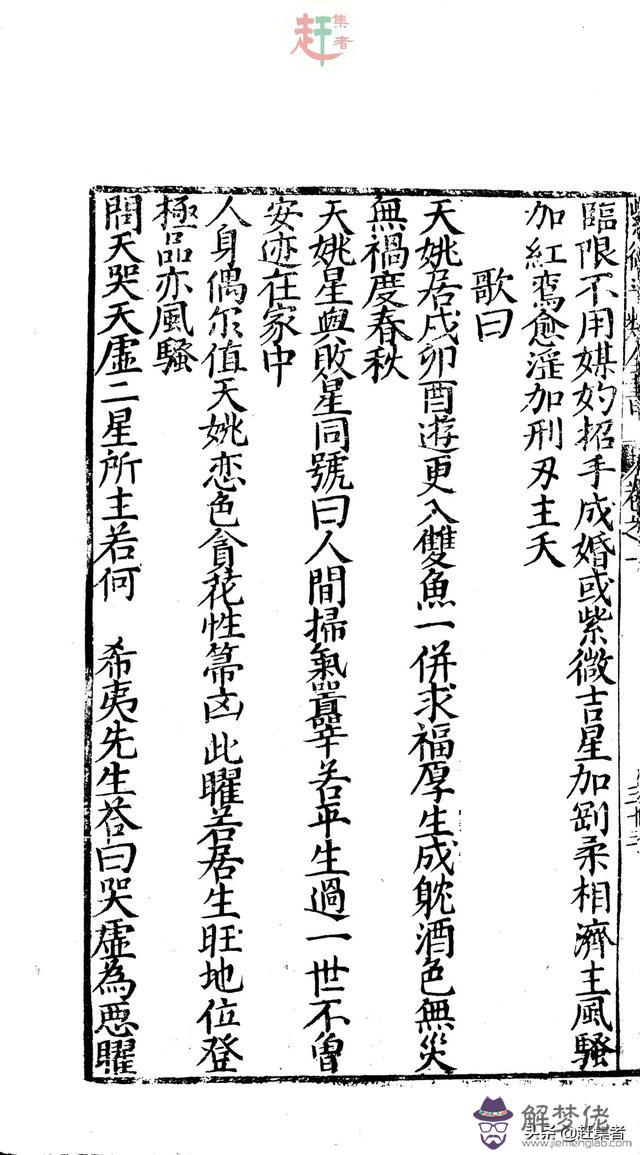 趕集者
臨限不用媒妁招手成婚或紫微吉星加剛柔相濟主風騷
加紅鸞愈淫加刑刃主夭
歌曰
天姚居戌卯酉遊更入雙魚一併求福厚生成躭酒色無災
無禍度春秋
天姚星與敗星同號曰人間掃氣囂辛苦平生過一世不曾
安迹在家中
人身偶尔值天姚恋色貪花性帶凶此曜若居生旺地位登
極品亦風騷
問天哭天虛二星所主若何 希夷先生荅曰哭虛為惡曜
解梦佬
www.jiemenglao.com
头条@赶集者